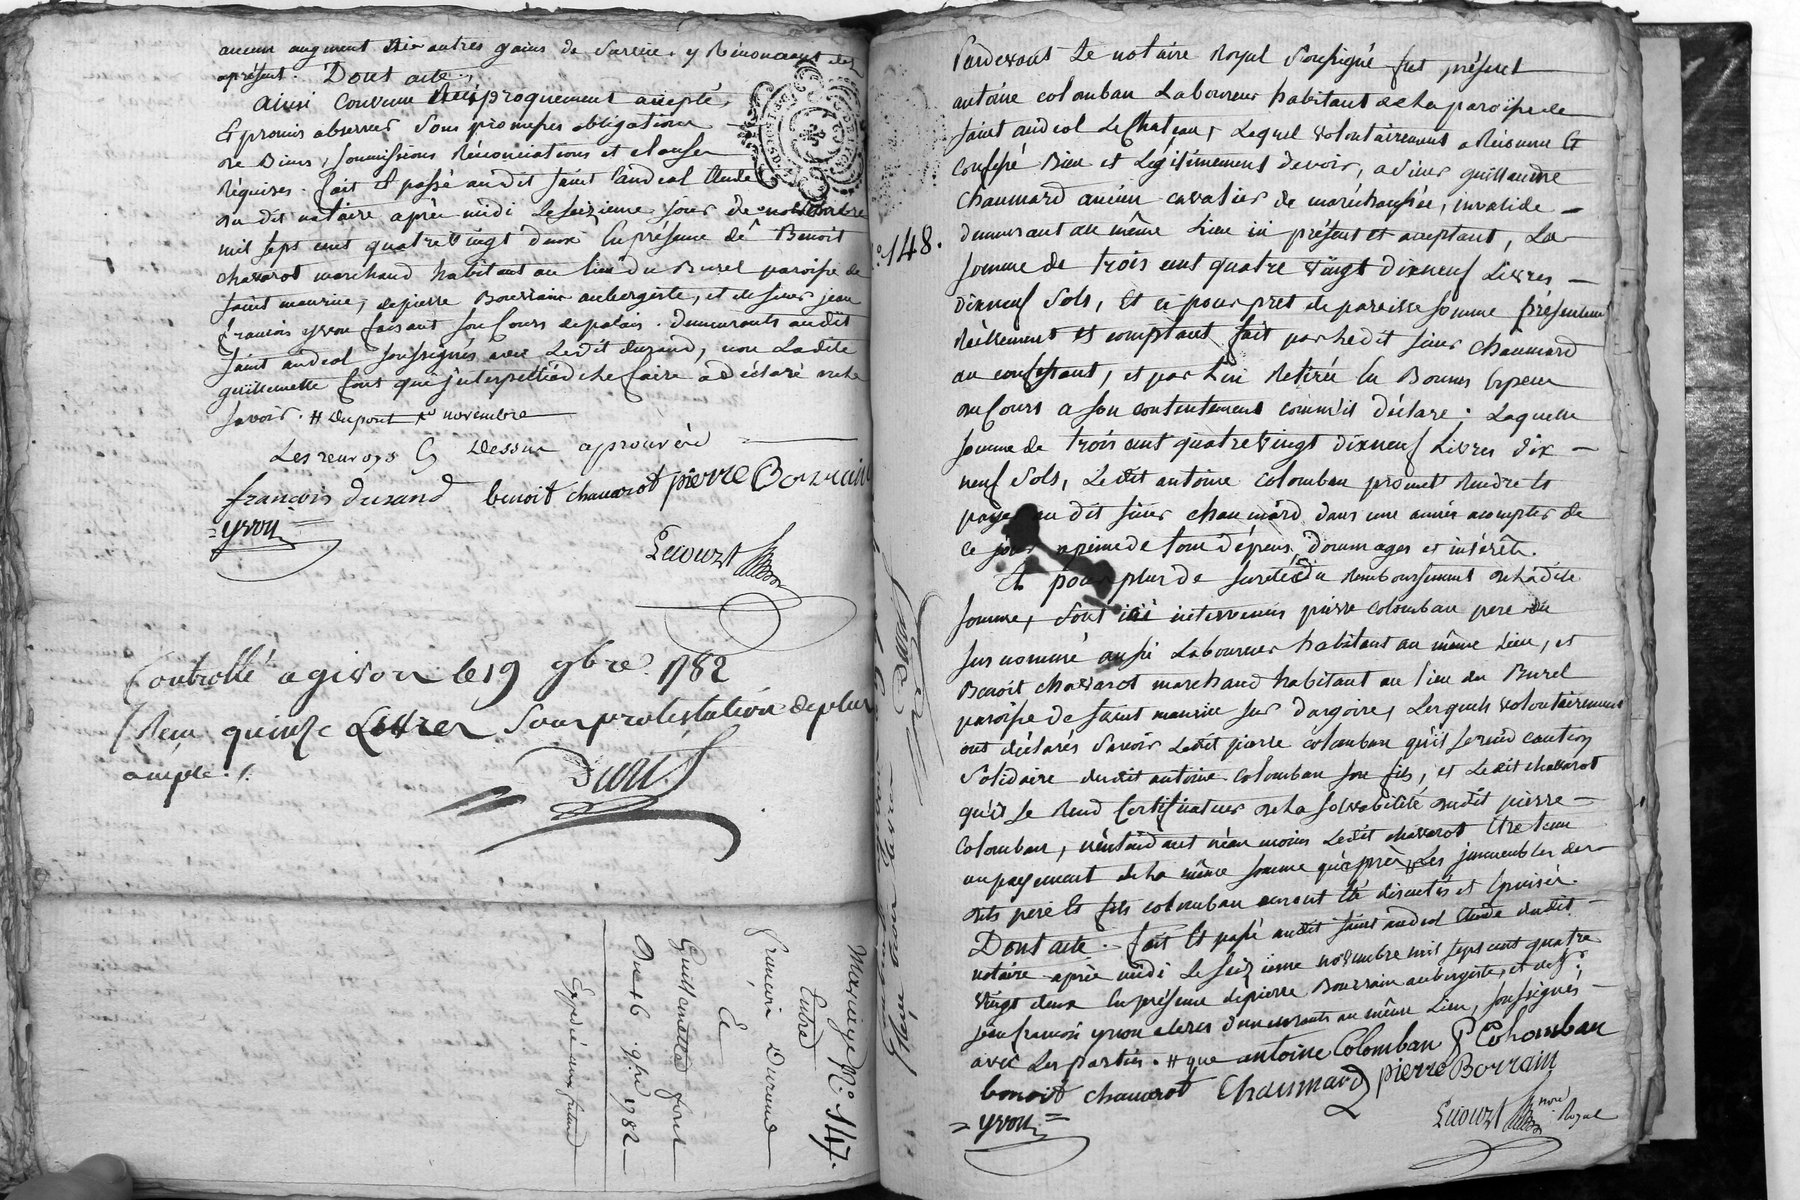 aucun augment ni autres gains de survie, y Renonceant dès
apresent. Dont acte.
ainsi convenu Réciproquement accepté,
Et promis observer sous promesses obligation
de Biens, soumissions Rénonciations et clauses
Réquises. fait et passé audit saint andeol étude
du dit notaire après midi le seizieme jour de novembre
mil sept cent quatre vingt deux En présence de Benoit
chavarot marchand habitant au lieu du Burel paroisse de
saint maurice, de pierre Bourrain aubergiste, et de sieur jean
françois yvon faisant son cours de palais. demeurants audit
saint andeol soussignés avec Ledit durand, non Ladite
guillemette font qui interpellée de le faire a déclaré ne le
savoir. # Dupont novembre
Les renvoys cy Dessus aprouvés
françois durand benoit chavarot pierre Borrain
= yvon =
Lecourt
Controllé a givors le 19 9bre 1782
Reçu quinze Livres sous protestation de plus
ample .
Mariage N.° 147.
Entre
françois Durand
Et
Guillemette font
Du 16 9bre 1782
Expédié aux futurs
N.° 148.
Pardevant Le notaire Royal soussigné fut présent
antoine colomban Laboureur habitant de la paroisse de
saint andeol Le Chateau, Lequel volontairement a Réconnu Et
confessé Bien et Légitimement devoir, a sieur guillaume
Chaumard ancien cavalier de maréchaussée, invalide
demeurant au même Lieu ici présent et acceptant, La
somme de trois cent quatre vingt dixneuf Livres
dixneuf sols, Et ce pour pret de pareille somme présentement
Réellement et comptant fait par Ledit sieur Chaumard
au confessant, et par Lui Retirée En Bonnes Especes
du cours a son contentement comm'il déclare. Laquelle
somme de trois cent quatre vingt dixneuf Livres dix
neuf sols, Ledit antoine colomban promet Rendre Et
payer au dit sieur chaumard dans une année acompter de
ce jour apeine de tous dépens, dommages et intérêts.
Et pour plus de sureté du Remboursement de Ladite
somme, sont ici intervenus pierre colomban pere du
susnommé aussi Laboureur habitant au même Lieu, et
Benoit chavarot marchand habitant au lieu du Burel
paroisse de saint maurice sur dargoire, Lesquels volontairement
ont déclarés savoir Ledit pierre colomban qu'il se rend caution
solidaire dudit antoine colomban son fils, et Ledit chavarot
qu'il se Rend Certificateur de la solvabilité dudit pierre
Colomban, n'entendant néanmoins Ledit chavarot Etre tenu
au payement de La même somme qu'après Les immeubles des
dits pere Et fils colomban auront Eté discutés et Epuisés.
Dont acte. fait Et passé audit saint andeol Etude dudit
notaire après midi Le seizieme novembre mil sept cent quatre
vingt deux En présence de pierre Bourrain aubergiste, et de sr
jean françois yvon clerc demeurants au même Lieu, soussignés
avec Les parties. # que antoine Colomban P Colomban
benoit chavarot Chaumard pierre Borrain
= yvon = Lecourt nore Royal